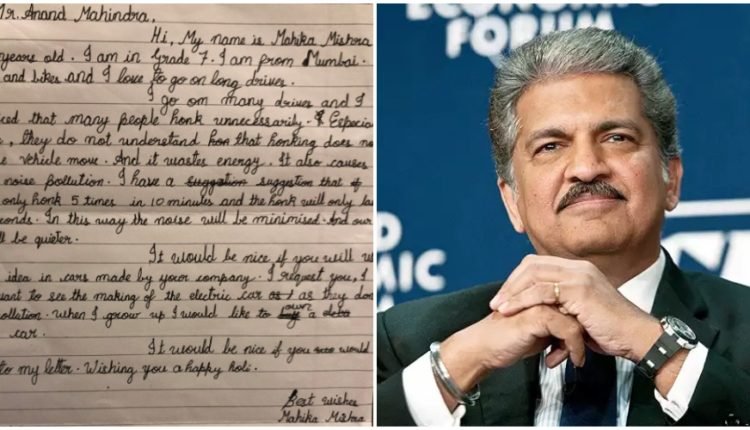 Mr. Anand Mahindra,
Hi, My name is Mahika Mishra
years old. I am in Grade 7. I am from Mumbai.
and bikes and I love to go on long drives.
I go on many drives and I
iced that many people honk unnecessarily. Especia
, they do not understand that honking does no
e vehicle move. And it wastes energy. It also causes
noise pollution. I have a suggestion that
only honk 5 times in 10 minutes and the honk will only la
econds. In this way the noise will be minimised. And our
ll be quieter.
It would be nice if you will u
idea in cars made by your company. I request you, I
want to see the making of the electric car as they don
ollution. When I grow up I would like to own a
car.
It would be nice if you would
to my letter. Wishing you a happy holi.
Best wishes
Mahika Mishra
ECONOMIC
FORUM
D
OMIC